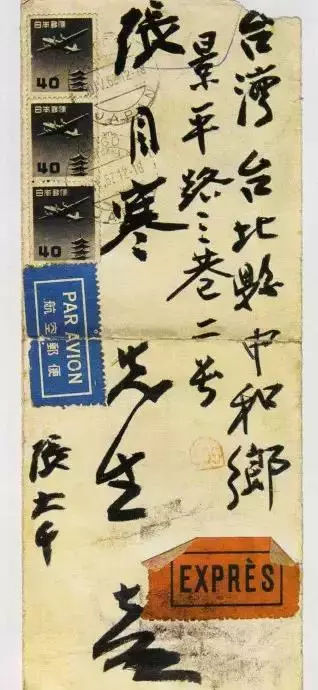 台灣 台北縣中和鄉
景平路三巷二号
張目寒 先生 台啓
張大千
日本郵便
40
日本郵便
40
日本郵便
40
JAPAN
PAR AVION
航空郵便
EXPRÈS